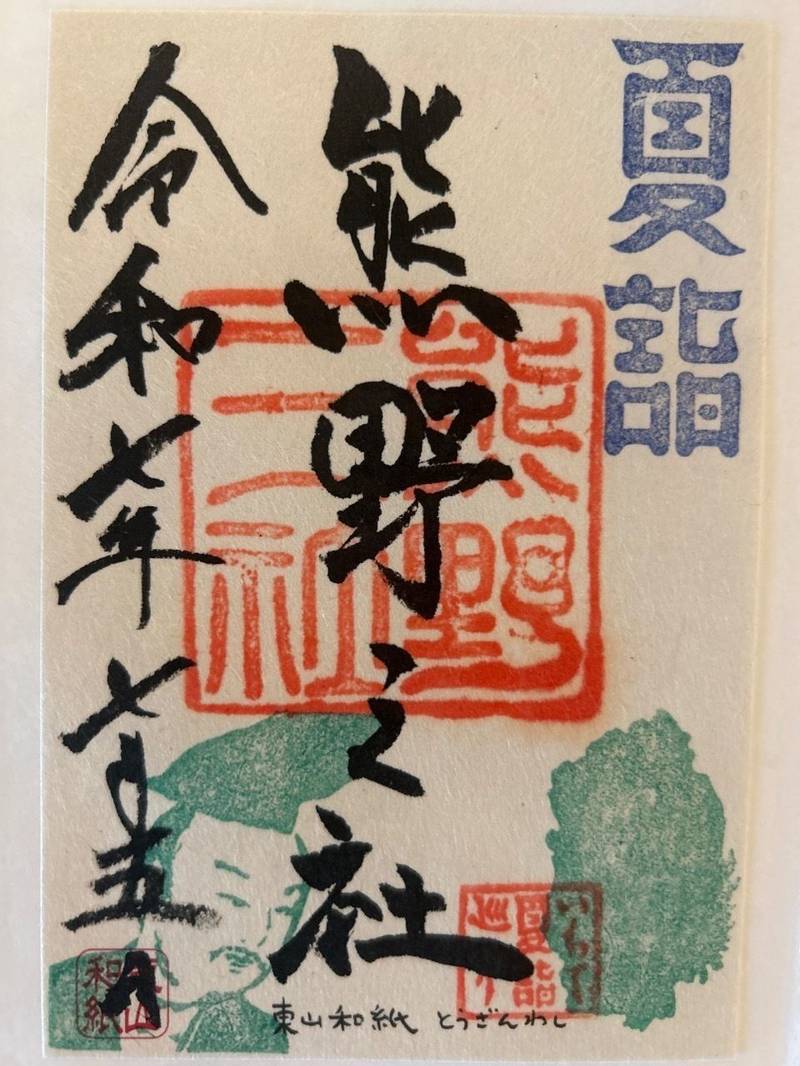 夏詣
熊野三社
令和七年七月五日
熊野
三社
いわて
夏詣
巡り
東山
和紙
東山和紙 とうざんわし